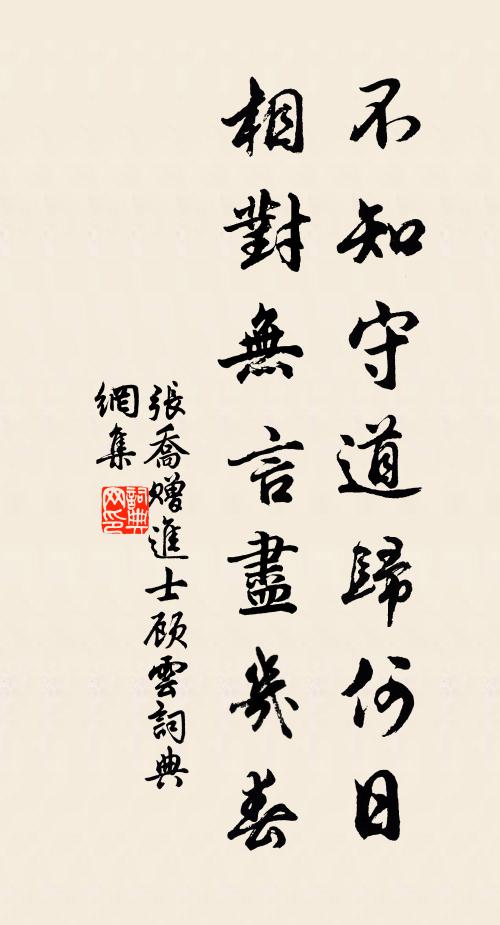 不知守道歸何日
相對無言盡幾春
張喬贈進士顾雲詞典
網集
詞典网印